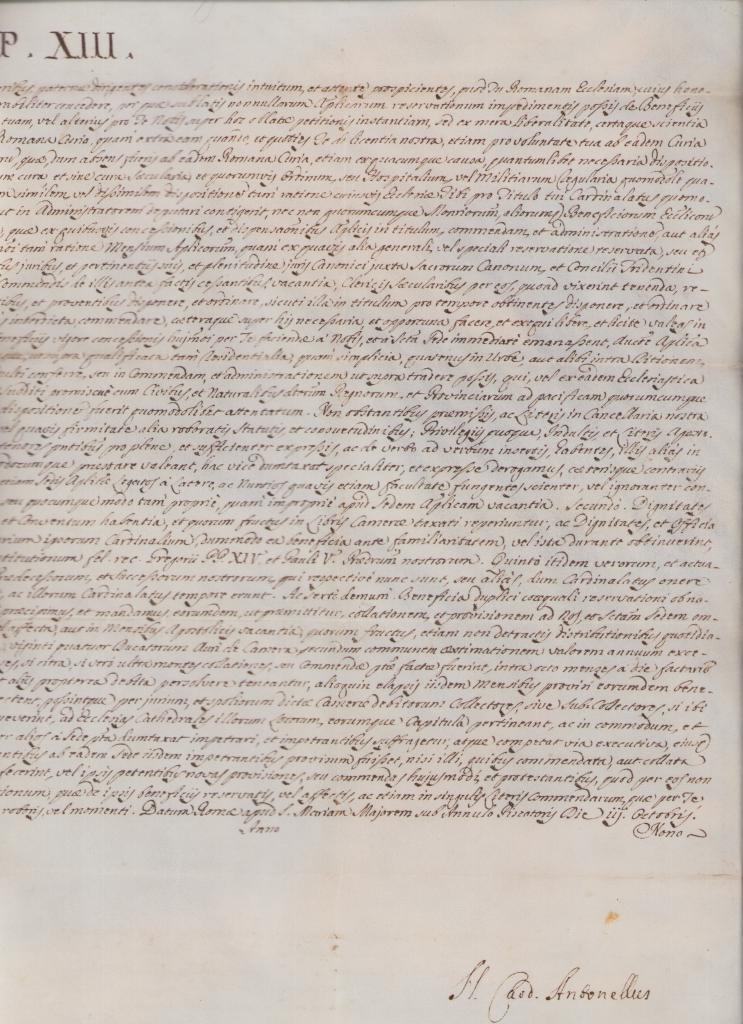 P. XIII.
paternæ dirigentes considerationis intuitum, et attente prospicientes, quod tu Romanam Ecclesiam, cuius hono-
concedere, per quæ sublatis nonnullorum Aplicarum reservationum impedimentis possis de Beneficiis
tuam, vel alterius pro Te Nobis super hoc oblatæ petitionis instantiam, sed ex mera liberalitate, certaque scientia
Romana Curia, quam extra eam quando, et quoties Te di licentia nostra, etiam pro voluntate tua ab eadem Curia
quæ dum absens fueris ab eadem Romana Curia, etiam ex quacumque causa, quantumlibet necessaria dispositio-
cum cura et sine cura Sæcularia et quorumvis Ordinum, seu Hospitalium, vel Militiarum Regularia quomodolt qua-
similem, vel dissimilem dispositionem tam ratione cuiusvis Ecclesiæ Tibi pro Titulo tui Cardinalatus quomo-
ut in Administratorem deputari contigerit, nec non quorumcumque Monriorum, aliorumq Beneficiorum Ecclicoru
que ex quibusvis concessionibus, et dispensationibus Aplicis in titulum, commendam, et administrationem, aut aliàs
tam ratione Mensium Aplicorum, quam ex quavis alia generali, vel speciali reservatione reservata, seu
juribus et pertinentiis suis, et plenitudine juris Canonici juxta Sacrorum Canonum, et Concilii Tridentini
Commendis de illis antea factis cessantibus vacantia, Clericis Sæcularibus per eos, quoad vixerint tenenda, re-
et proventibus disponere, et ordinare, sicuti illa in titulum pro tempore obtinentes disponere, et ordinare
interdicta, commendare, cæteraque super his necessaria, et opportuna facere, et exequi libere, et licite valeas in
super concessionis hujmoi per Te faciendæ a Nobis, et a dicta Sede immediate emanassent, Aucte Aplica
qualificata tam Residentialia, quam simplicia, quatenus in Urbe, aut alibi intra Citionem,
conferre, seu in Commendam, et administrationem ut supra tradere possis, qui, vel ex eadem Ecclesiastica
Subditi promiscuè cum Civibus, et Naturalibus dictorum Regnorum, et Provinciarum ad pacificam quorumcumque
dispositione fuerit quomodolibet attentatum. Non obstantibus præmissis, ac Literis in Cancellaria nostra
vel quavis firmitate alia roboratis Statutis, et consuetudinibus; Privilegiis quoque, Indultis, et Literis Apost-
tenores pntibus pro plene, et sufficienter expressis, ac de verbo ad verbum insertis, habentes, illis aliàs in
præstare valeant, hac vice dumtaxat specialiter, et expresse derogamus, cæterisque contrariis
etiam Sedis Aplicæ Legatos à Latere, ac Nuntios quavis etiam facultate fungentes scienter, vel ignoranter con-
seu quocumque modo tam proprie, quam improprie apud Sedem Aplicam vacantia. Secundo. Dignitates
et Conventum habentia, et quorum fructus in Libris Cameræ taxati reperiuntur, ac Dignitates, et Officia
ipsorum Cardinalium, dummodo ea beneficia ante familiaritatem, vel ista durante obtinuerint,
fel. rec. Gregorii PP. XIV. et Pauli V. Prædrum nostrorum. Quinto itidem verorum, et actua-
Prædecessorum, et successorum nostrorum, qui respective nunc sunt, seu aliàs, dum Cardinalatus onere
ac illorum Cardinalatus tempore erunt. Ac Sexti demum. Beneficia duplici cœquali reservationi obno-
præcipimus, et mandamus eorundem, ut præmittitur, collationem, et provisionem ad Nos, et dictam Sedem om-
affecta, aut in Mensibus Apostolicis vacantia, quorum fructus, etiam non detractis distributionibus quotidia-
viginti quatuor Ducatorum Auri de Camera secundum communem æstimationem valorem annuum exce-
si citra, si verò ultra montes collationes, seu Commendæ pte factæ fuerint, intra octo menses a die factarum
aliis propterea debita persolvere teneantur, alioquin elapsis iisdem Mensibus provim eorumdem bene-
possintque per jurium, et spoliorum dictæ Cameræ debitorum Collectores, sive Sub Collectores, si ibi
ad Ecclesias Cathedrales illorum Locorum, eorumque Capitula pertineant, ac in commodum, et
alios a Sede pta dumtaxat impetrari, et impetrantibus suffragetur, atque competat via executiva, ejusq
ab eadem Sede iisdem impetrantibus provisum fuisset, nisi illi, quibus commendata, aut collata
fecerint, vel ipsis petentibus novas provisiones, seu commendas hujusmodi, et protestantibus, quod per eos non
quæ de ipsis beneficiis reservatis, vel affectis, ac etiam in singulis Literis Commendarum, quæ per Te
roboris, vel momenti. Datum Romæ apud S. Mariam Majorem sub Annulo Piscatoris Die iij. Octobris.
Anno Nono
H. Card. Antonellus